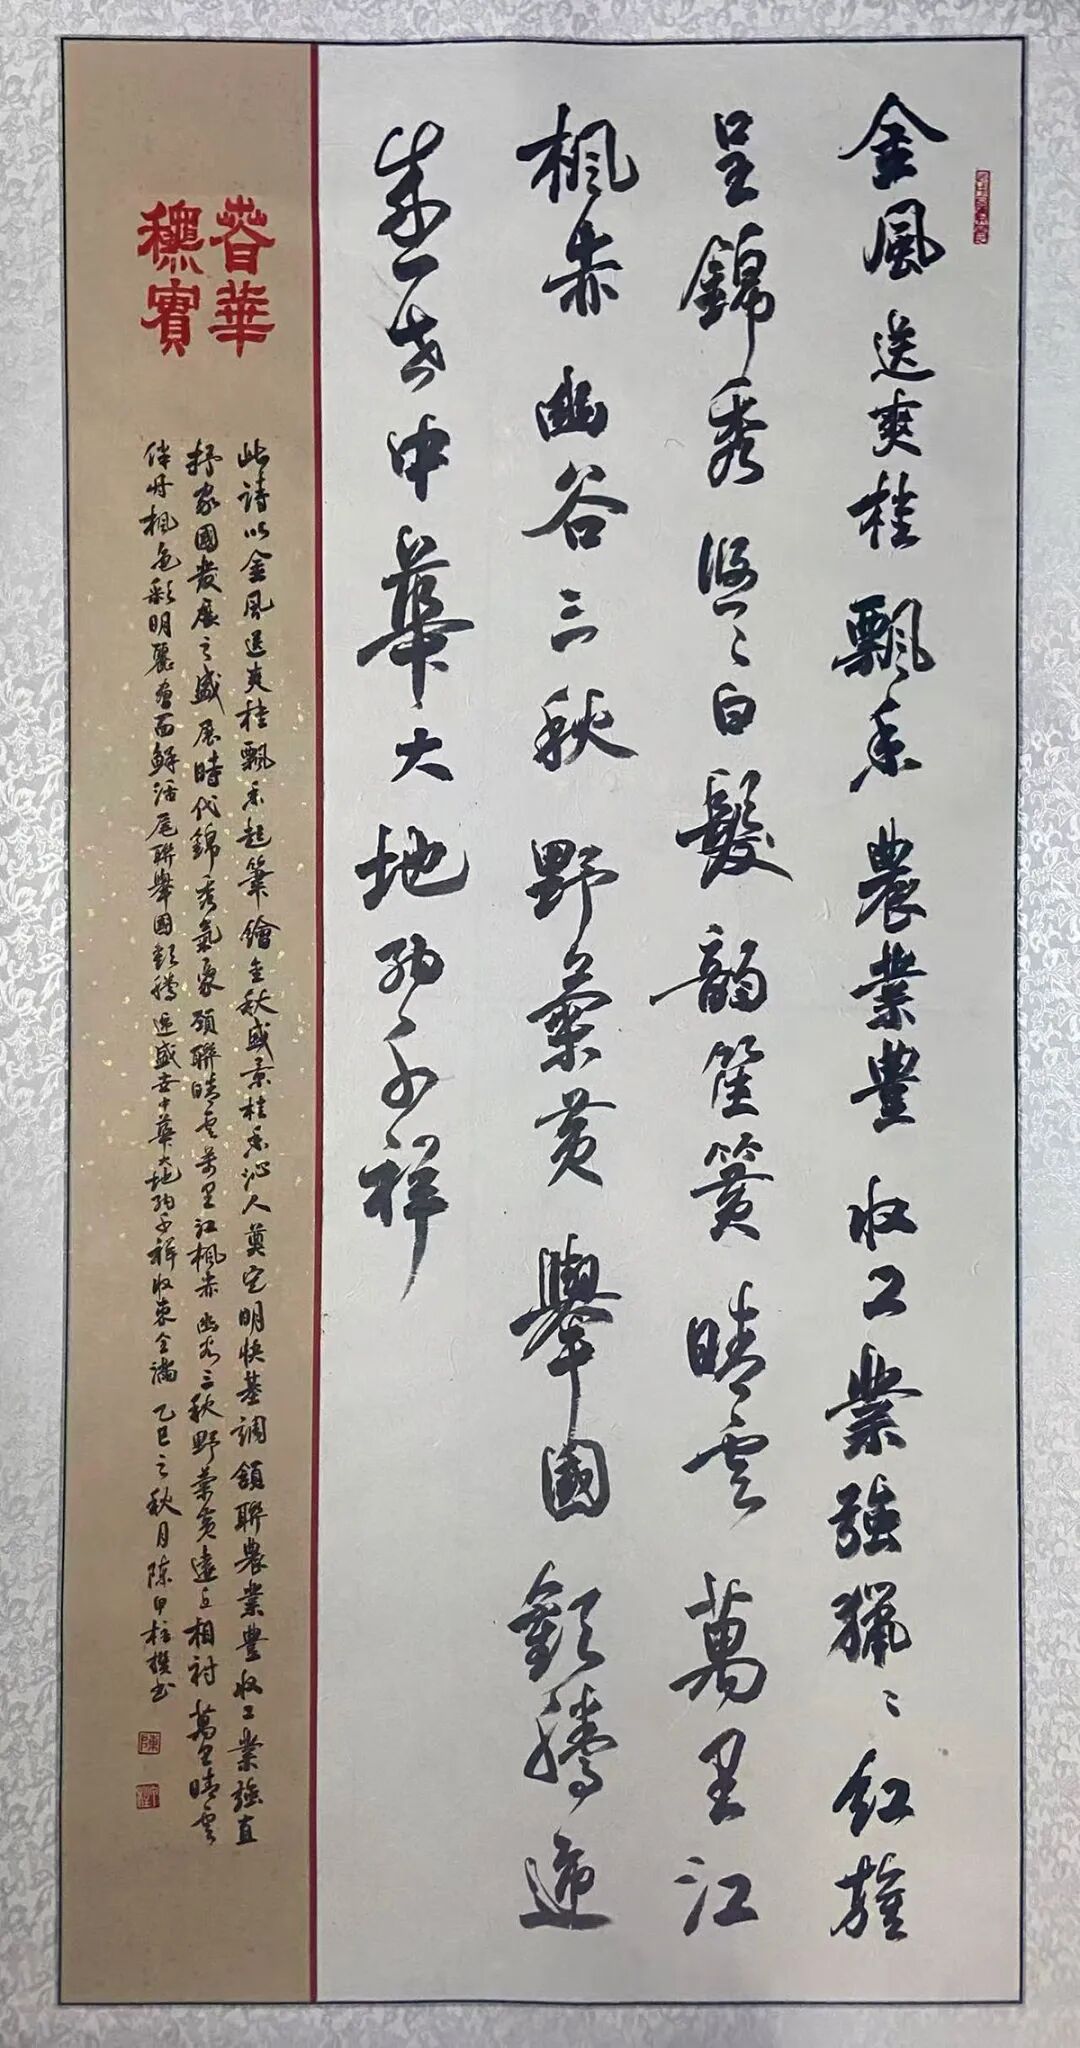 金風送爽桂飄香農業豐收工業強獵〻紅旌
呈錦秀悠〻白髮韻笙簧晴雲萬里江
楓赤幽谷三秋野菊黃舉國歡騰迎
盛世中華大地納千祥
春華
穗實
此詩以金風送爽桂飄香起筆繪金秋盛景桂香沁人奠定明快基調頷聯農業豐收工業強直
抒家國發展之盛展時代錦秀氣象頸聯晴雲萬里江楓赤幽谷三秋野菊黃遠近相衬萬里晴雲
伴丹楓色彩明麗畫面鮮活尾聯舉國歡騰迎盛世中華大地納千祥收束全滿乙巳之秋月陈甲柱撰书